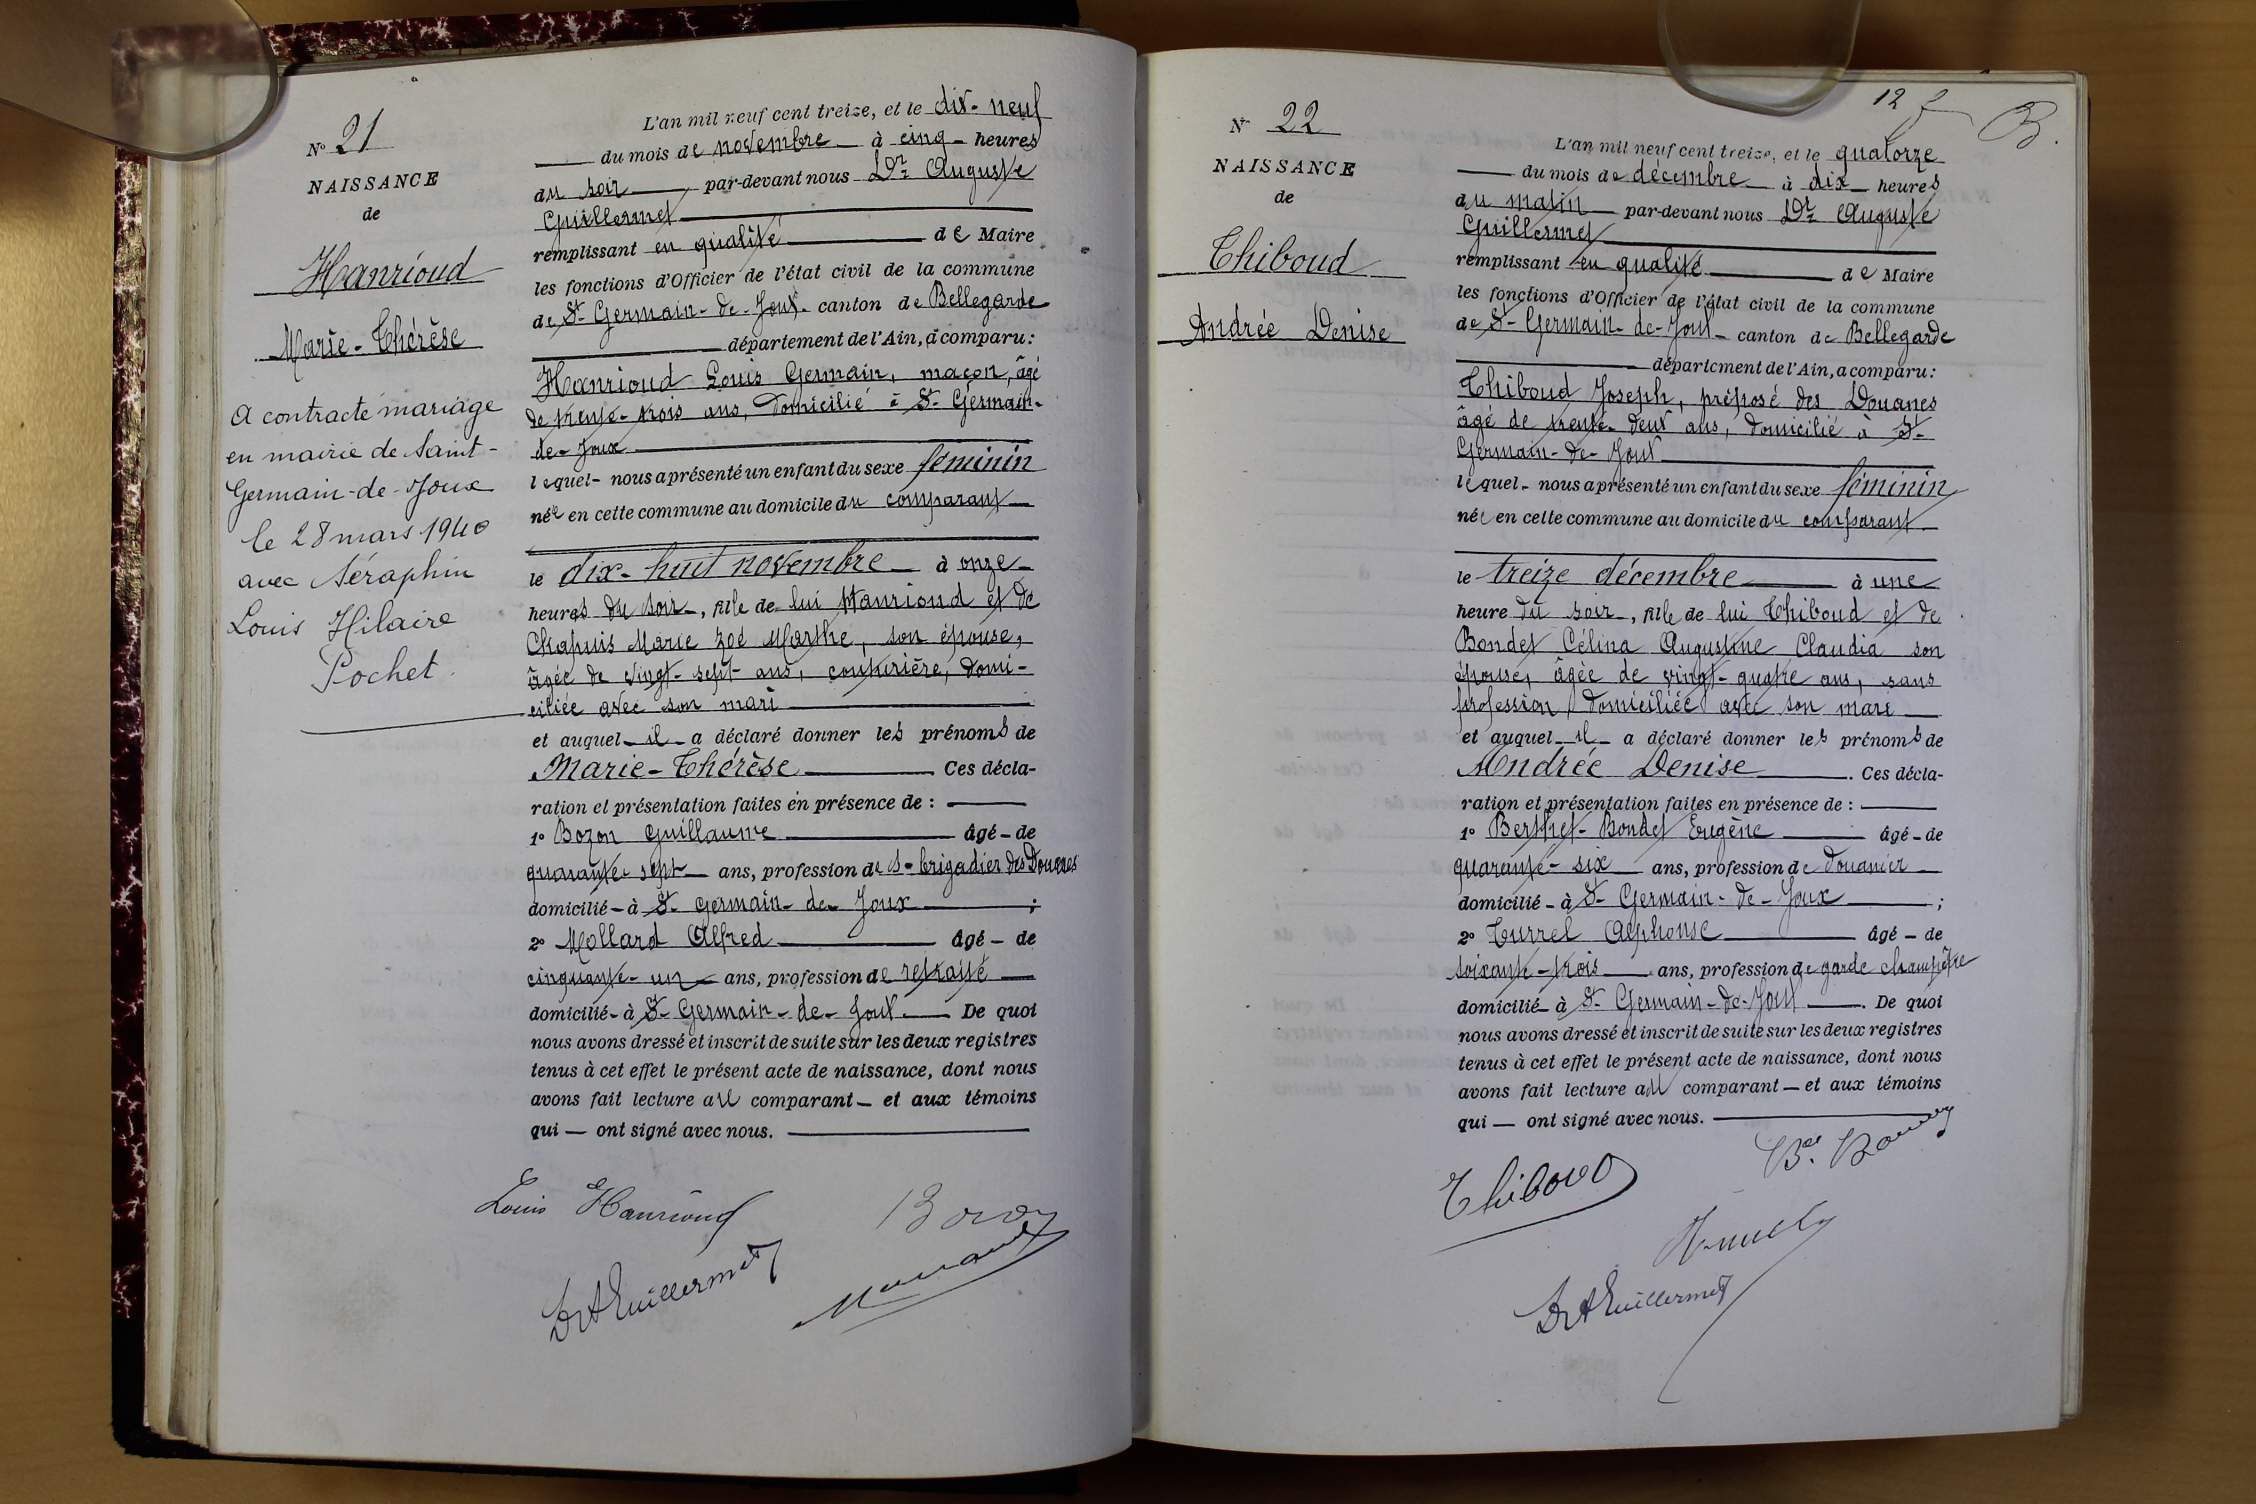 N° 21
NAISSANCE
de
Hanrioud
Marie-Thérèse
A contracté mariage
en mairie de Saint-
Germain-de-Joux
le 28 mars 1940
avec Séraphin
Louis Hilaire
Pochet.
L'an mil neuf cent treize, et le dix-neuf
du mois de novembre à cinq heures
du soir par-devant nous Dr Auguste
Guillermet
remplissant en qualité de Maire
les fonctions d'Officier de l'état civil de la commune
de St-Germain-de-Joux canton de Bellegarde
département de l'Ain, a comparu :
Hanrioud Louis Germain, maçon, âgé
de trente-trois ans, domicilié à St-Germain-
de-Joux
lequel nous a présenté un enfant du sexe féminin
née en cette commune au domicile du comparant
le dix-huit novembre à onze
heures du soir, fille de lui Hanrioud et de
Chapuis Marie Zoé Marthe, son épouse,
âgée de vingt-sept ans, couturière, domi-
ciliée avec son mari
et auquel il a déclaré donner les prénoms de
Marie-Thérèse Ces décla-
ration et présentation faites en présence de :
1° Bozon Guillaume âgé de
quarante-sept ans, profession de s-brigadier des Douanes
domicilié à St-Germain-de-Joux ;
2° Mollard Alfred âgé de
cinquante-un ans, profession de retraité
domicilié à St-Germain-de-Joux De quoi
nous avons dressé et inscrit de suite sur les deux registres
tenus à cet effet le présent acte de naissance, dont nous
avons fait lecture au comparant et aux témoins
qui ont signé avec nous.
Louis Hanrioud Bozon
Dr A Guillermet
12 f
N° 22
NAISSANCE
de
Thiboud
Andrée Denise
L'an mil neuf cent treize, et le quatorze
du mois de décembre à dix heures
du matin par-devant nous Dr Auguste
Guillermet
remplissant en qualité de Maire
les fonctions d'Officier de l'état civil de la commune
de St-Germain-de-Joux canton de Bellegarde
département de l'Ain, a comparu :
Thiboud Joseph, préposé des Douanes
âgé de trente-deux ans, domicilié à St-
Germain-de-Joux
lequel nous a présenté un enfant du sexe féminin
née en cette commune au domicile du comparant
le treize décembre à une
heure du soir, fille de lui Thiboud et de
Bondet Célina Augustine Claudia son
épouse, âgée de vingt-quatre ans, sans
profession, domiciliée avec son mari
et auquel il a déclaré donner les prénoms de
Andrée Denise. Ces décla-
ration et présentation faites en présence de :
1° Berthet-Bondet Eugène âgé de
quarante-six ans, profession de douanier
domicilié à St-Germain-de-Joux ;
2° Turrel Alphonse âgé de
soixante-trois ans, profession de garde champêtre
domicilié à St-Germain-de-Joux. De quoi
nous avons dressé et inscrit de suite sur les deux registres
tenus à cet effet le présent acte de naissance, dont nous
avons fait lecture au comparant et aux témoins
qui ont signé avec nous.
Thiboud
Dr A Guillermet